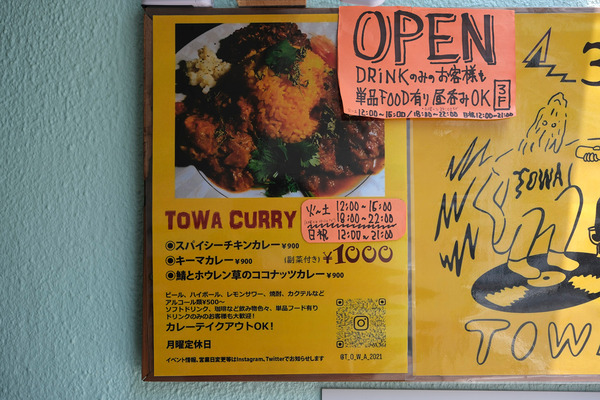 OPEN
DRiNKのみのお客様も
単品FOOD有り 昼呑みOK
3F
12:00~16:00/18:00~22:00 日祝12:00~21:00
TOWA CURRY
火~土 12:00~16:00
18:00~22:00
日祝 12:00~21:00
◉スパイシーチキンカレー¥900
◉キーマカレー¥900
(副菜付き)¥1000
◉鯖とホウレン草のココナッツカレー¥900
ビール、ハイボール、レモンサワー、焼酎、カクテルなど
アルコール類¥500~
ソフトドリンク、珈琲など飲み物色々、単品フード有り
ドリンクのみのお客様も大歓迎!
カレーテイクアウトOK!
月曜定休日
イベント情報、営業日変更等はInstagram、Twitterでお知らせします
@T_O_W_A_2021
3
TOWA
TOW